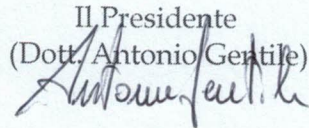 Il Presidente
(Dott. Antonio Gentile)
Antonio Gentile